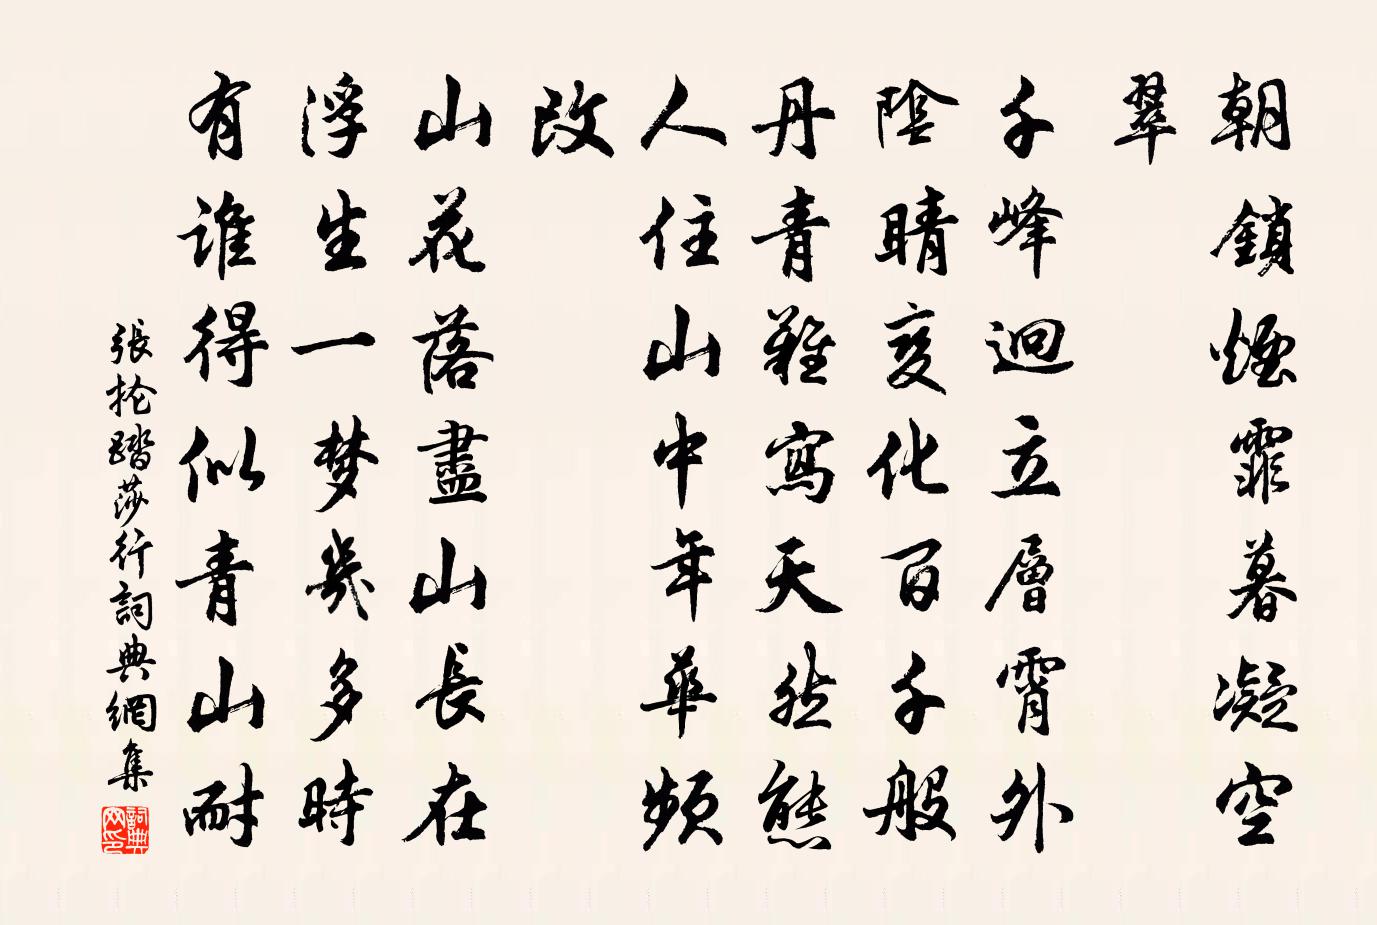 朝鎖煙霏暮凝空
翠
千峰迥立層霄外
陰晴變化百千般
丹青難寫天然態
人住山中年華頻
改
山花落盡山長在
浮生一梦幾多時
有誰得似青山耐
張掄踏莎行詞典網集
詞典网印